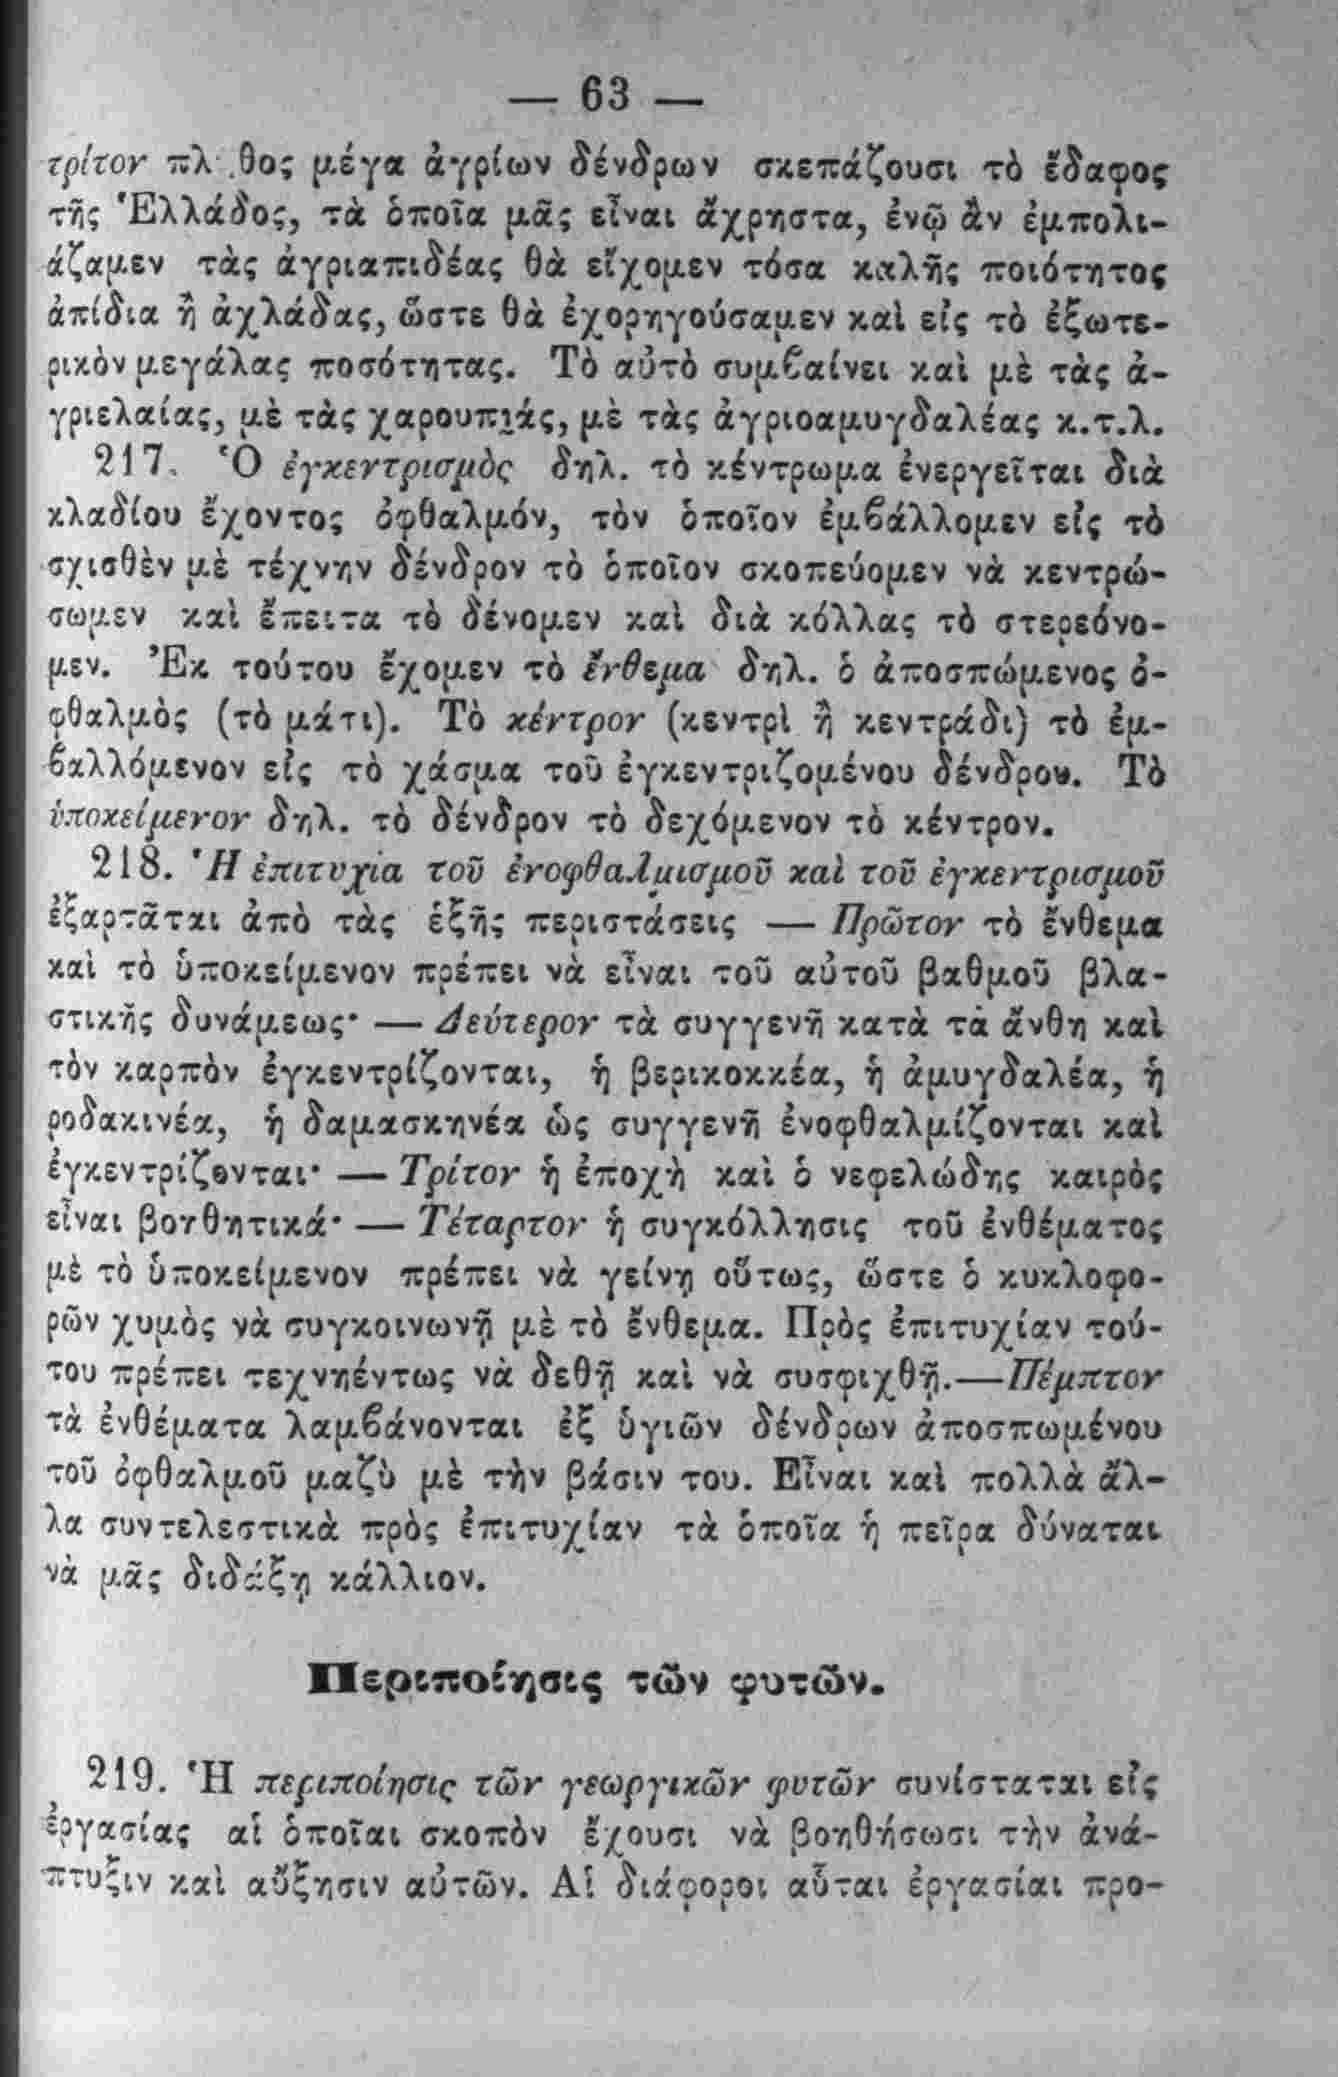 — 63 —
τρίτον πλῆθος μέγα ἀγρίων δένδρων σκεπάζουσι τὸ ἔδαφος
τῆς Ἑλλάδος, τὰ ὁποῖα μᾶς εἶναι ἄχρηστα, ἐνῷ ἂν ἐμπολι-
άζαμεν τὰς ἀγριαπιδέας θὰ εἴχομεν τόσα καλῆς ποιότητος
ἀπίδια ἢ ἀχλάδας, ὥστε θὰ ἐχορηγούσαμεν καὶ εἰς τὸ ἐξωτε-
ρικὸν μεγάλας ποσότητας. Τὸ αὐτὸ συμβαίνει καὶ μὲ τὰς ἀ-
γριελαίας, μὲ τὰς χαρουπιάς, μὲ τὰς ἀγριοαμυγδαλέας κ.τ.λ.
217. Ὁ ἐγκεντρισμὸς δηλ. τὸ κέντρωμα ἐνεργεῖται διὰ
κλαδίου ἔχοντος ὀφθαλμόν, τὸν ὁποῖον ἐμβάλλομεν εἰς τὸ
σχισθὲν μὲ τέχνην δένδρον τὸ ὁποῖον σκοπεύομεν νὰ κεντρώ-
σωμεν καὶ ἔπειτα τὸ δένομεν καὶ διὰ κόλλας τὸ στερεόνο-
μεν. Ἐκ τούτου ἔχομεν τὸ ἔνθεμα δηλ. ὁ ἀποσπώμενος ὀ-
φθαλμὸς (τὸ μάτι). Τὸ κέντρον (κεντρὶ ἢ κεντράδι) τὸ ἐμ-
βαλλόμενον εἰς τὸ χάσμα τοῦ ἐγκεντριζομένου δένδρου. Τὸ
ὑποκείμενον δηλ. τὸ δένδρον τὸ δεχόμενον τὸ κέντρον.
218. Ἡ ἐπιτυχία τοῦ ἐνοφθαλμισμοῦ καὶ τοῦ ἐγκεντρισμοῦ
ἐξαρτᾶται ἀπὸ τὰς ἑξῆς περιστάσεις — Πρῶτον τὸ ἔνθεμα
καὶ τὸ ὑποκείμενον πρέπει νὰ εἶναι τοῦ αὐτοῦ βαθμοῦ βλα-
στικῆς δυνάμεως· — Δεύτερον τὰ συγγενῆ κατὰ τὰ ἄνθη καὶ
τὸν καρπὸν ἐγκεντρίζονται, ἡ βερικοκκέα, ἡ ἀμυγδαλέα, ἡ
ροδακινέα, ἡ δαμασκηνέα ὡς συγγενῆ ἐνοφθαλμίζονται καὶ
ἐγκεντρίζονται· — Τρίτον ἡ ἐποχὴ καὶ ὁ νεφελώδης καιρὸς
εἶναι βοηθητικά· — Τέταρτον ἡ συγκόλλησις τοῦ ἐνθέματος
μὲ τὸ ὑποκείμενον πρέπει νὰ γείνῃ οὕτως, ὥστε ὁ κυκλοφο-
ρῶν χυμὸς νὰ συγκοινωνῇ μὲ τὸ ἔνθεμα. Πρὸς ἐπιτυχίαν τού-
του πρέπει τεχνηέντως νὰ δεθῇ καὶ νὰ συσφιχθῇ.—Πέμπτον
τὰ ἐνθέματα λαμβάνονται ἐξ ὑγιῶν δένδρων ἀποσπωμένου
τοῦ ὀφθαλμοῦ μαζὺ μὲ τὴν βάσιν του. Εἶναι καὶ πολλὰ ἄλ-
λα συντελεστικὰ πρὸς ἐπιτυχίαν τὰ ὁποῖα ἡ πεῖρα δύναται
νὰ μᾶς διδάξῃ κάλλιον.
Περιποίησις τῶν φυτῶν.
219. Ἡ περιποίησις τῶν γεωργικῶν φυτῶν συνίσταται εἰς
ἐργασίας αἱ ὁποῖαι σκοπὸν ἔχουσι νὰ βοηθήσωσι τὴν ἀνά-
πτυξιν καὶ αὔξησιν αὐτῶν. Αἱ διάφοροι αὗται ἐργασίαι προ-